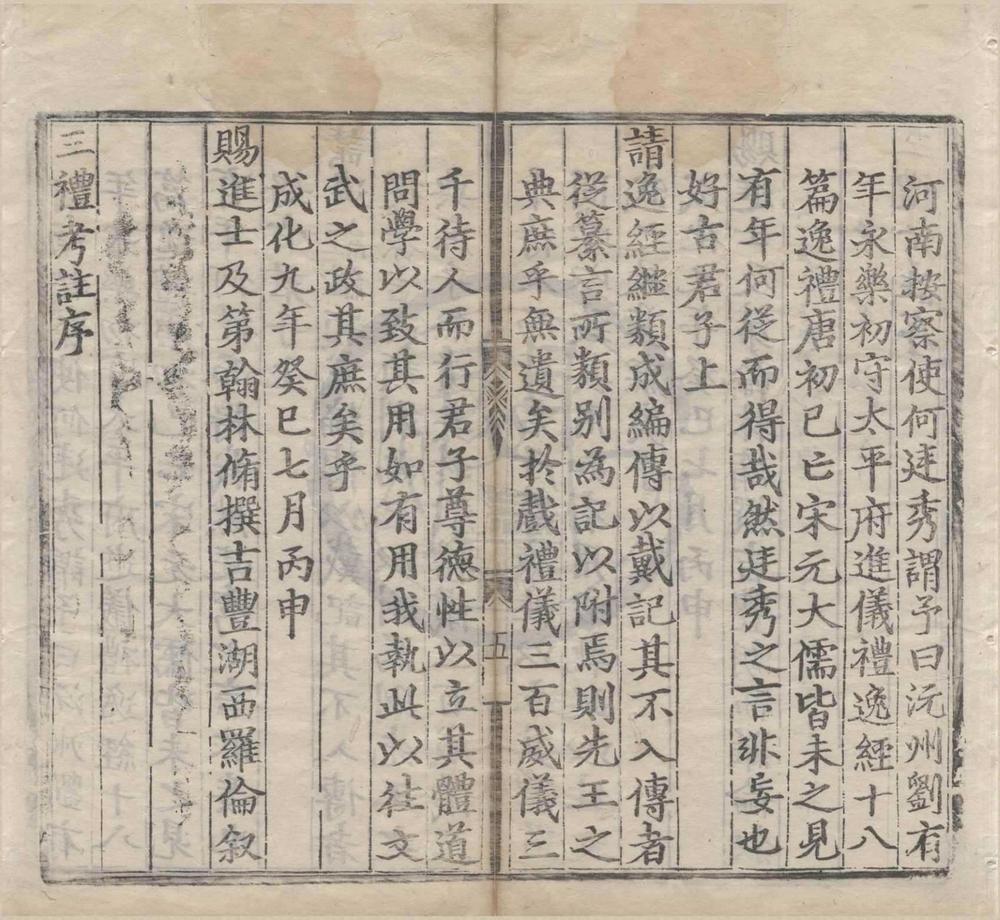 河南按察使何廷秀謂予曰沅州劉有
年永樂初守太平府進儀禮逸經十八
篇逸禮唐初已亡宋元大儒皆未之見
有年何從而得哉然廷秀之言非妄也
好古君子上
請逸經繼類成編傳以戴記其不入傳者
從纂言所類别為記以附焉則先王之
典庶乎無遺矣扵戲禮儀三百威儀三
五
千待人而行君子尊德性以立其體道
問學以致其用如有用我執此以徃文
武之政其庶矣乎
成化九年癸巳七月丙申
賜進士及第翰林脩撰吉豐湖西羅倫叙
三禮考註序